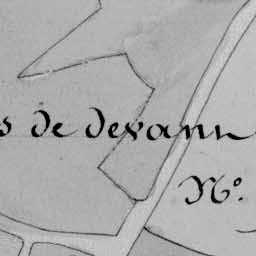 s de devann
N°.